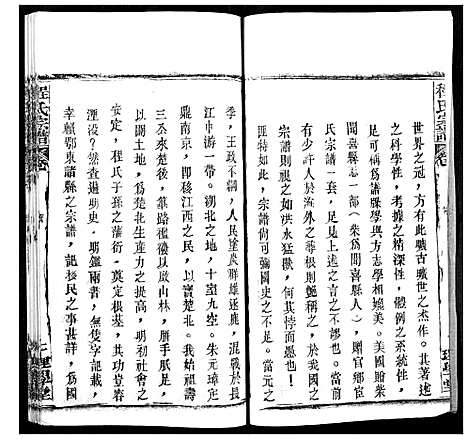 世界之冠，方有此曠古曠世之杰作。其著述
之科學性，考據之精深性，體例之系統性，
足可稱爲譜牒學與方志學相媲美。美國贈柴
聞喜縣志一部（柴爲聞喜縣人），贈官鄉宦
氏宗譜一套，足見上述之言之不謬也。當前
有少許人於海外之尋根則艷稱之，於我國之
宗譜則視之如洪水猛獸，何其悖而愚也！
匪特如此，宗譜尚可彌國史之不足。元
季，王政不綱，人民塗炭群雄逐鹿，混戰於長
江中游一帶。湖北之地，十室九空。朱元璋定
鼎南京，即移江西之民，以實楚北。我始祖壽
三公來楚後，篳路襤褸以啟山林，胼手胝足，
以闢土地，爲楚北生產力之提高，明初社會之
安定，程氏子孫之蕃衍，奠定根基，其功豈容
湮沒？然查遍明史、明鑑兩書，無隻字記載，
幸賴鄂東諸縣之宗譜，記移民之事甚詳，爲國
程氏宗譜 卷
理學堂